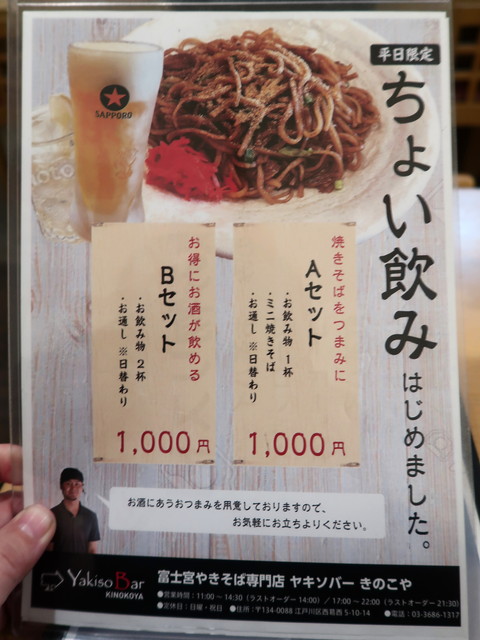 平日限定
ちょい飲みはじめました。
SAPPORO
焼きそばをつまみに
Aセット
・お飲み物 1杯
・ミニ焼きそば
・お通し ※日替わり
1,000円
お得にお酒が飲める
Bセット
・お飲み物 2杯
・お通し ※日替わり
1,000円
お酒にあうおつまみを用意しておりますので、
お気軽にお立ちよりください。
YakisoBar
KINOKOYA
富士宮やきそば専門店 ヤキソバー きのこや
●営業時間:11:00 〜 14:30(ラストオーダー 14:00) / 17:00 〜 22:00(ラストオーダー 21:30)
●定休日:日曜・祝日 ●住所:〒134-0088 江戸川区西葛西 5-10-14 ●電話:03-3686-1317